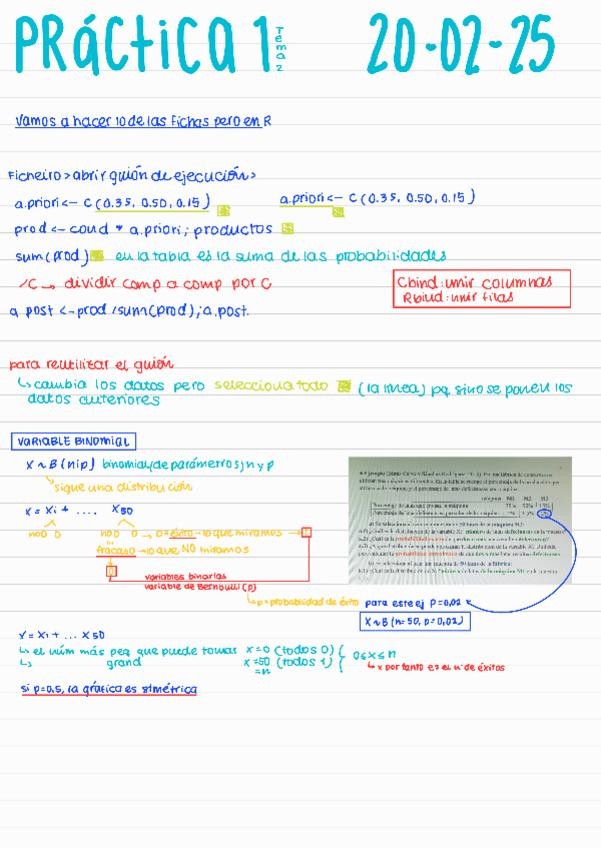 PRÁCTICA 1 Tema 2 20-02-25
Vamos a hacer 10 de las fichas pero en R
Ficheiro > abrir guión de ejecución >
a.priori <- C (0.35, 0.50, 0.15) a.priori <- C (0.35, 0.50, 0.15)
prod <- cond * a.priori; productos
sum(prod) en la tabla es la suma de las probabilidades
/C → dividir comp a comp por C
Cbind: unir columnas
Rbind: unir filas
a post <- prod /sum(prod); a.post.
para reutilizar el guión
↳ cambia los datos pero selecciona todo (la linea) pq sino se ponen los
datos anteriores
VARIABLE BINOMIAL
X ~ B (n,p) binomial (de parámetros) n y p
sigue una distribución
X = X1 + .... X50
no D D no D D → D = éxito → lo que miramos → 1
fracaso → lo que NO miramos
0
variables binarias
variable de Bernoulli (p)
↳ p = probabilidad de éxito para este ej P=0,02
X~B (n=50, p=0,02)
X = X1 + ... X50
↳ el núm más peq que puede tomar X=0 (todos 0)
↳ grand X=50 (todos 1)
=n
0≤X≤n
↳ X por tanto es el nº de éxitos
si p=0,5, la gráfica es simétrica